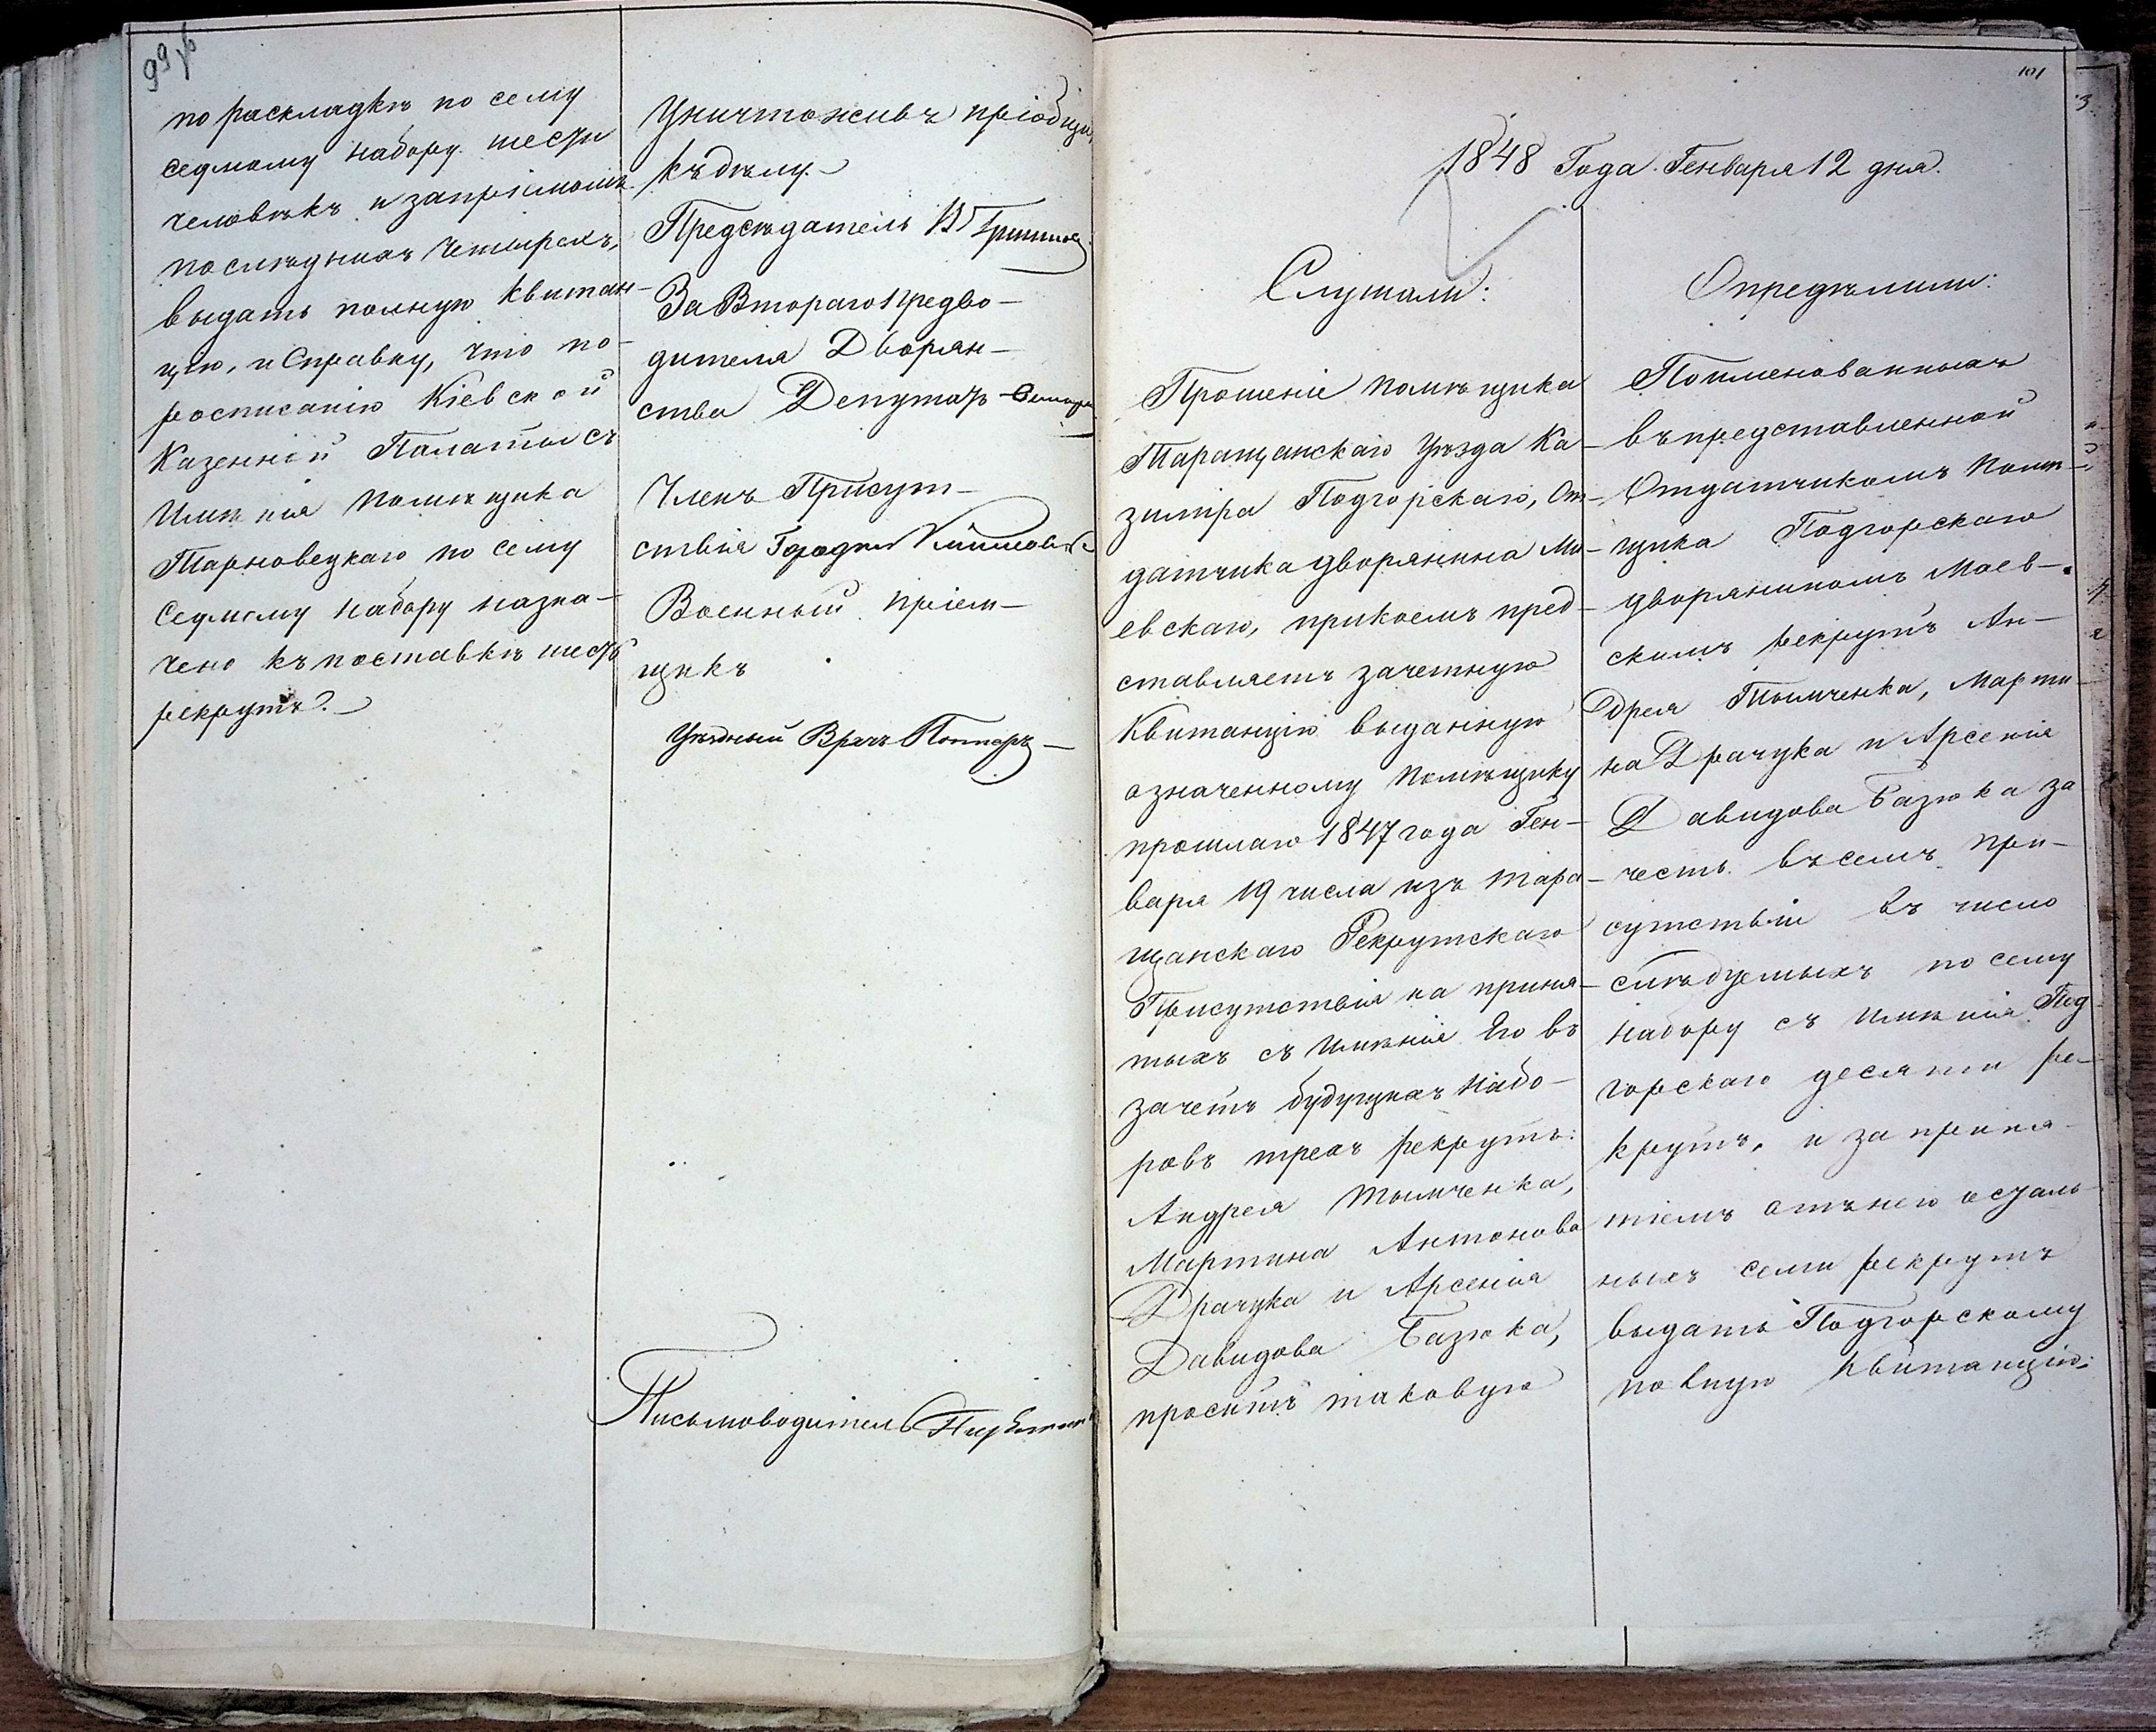 99 об
по раскладкѣ по сему
седмому набору шести
человѣкъ и запріемомъ
послѣднихъ четырехъ,
выдать полную квитан-
цію, и Справку, что по-
росписанію Кіевской
Казенной Палаты съ
Имѣнія помѣщика
Тарновецкаго по сему
Седмому набору назна-
чено къ поставкѣ шесть
рекрутъ.
Уничтоживъ пріобщи
къ дѣлу.
Предсѣдатель
За Втораго предво-
дителя Дворян-
ства Депутат
Членъ Присут-
ствія
Военный пріем-
щикъ
Уѣздный Врачъ
Письмоводитель
101
1848 Года Генваря 12 дня.
Слушали:
Прошеніе помѣщика
Таращанскаго Уѣзда Ка-
зимра Подгорскаго, От-
датчика дворянина Ма-
евскаго, прикоемъ пред-
ставляетъ зачетную
Квитанцію выданную
означенному помѣщику
прошлаго 1847 года Ген-
варя 19 числа изъ Тара-
щанскаго Рекрутскаго
Присутствія на приня-
тыхъ съ имѣнія Его въ
зачетъ будущихъ набо-
ровъ трехъ рекрутъ:
Андрея Тымченка,
Мартина Антонова
Драчука и Арсенія
Давидова Базюка,
проситъ таковую
Опредѣлили:
Поименованныхъ
въ представленной
Отдатчикомъ помѣ-
щика Подгорскаго
дворяниномъ Маев-
скимъ рекрутъ Ан-
дрея Тымченка, Марти-
на Драчука и Арсенія
Давидова Базюка за
честь въ семъ при-
сутствіи въ число
слѣдуемыхъ по сему
набору съ имѣнія Под
горскаго десяти ре-
крутъ, и за приня-
тіемъ отъ него осталь
ныхъ семи рекрутъ
выдать Подгорскому
полную Квитанцію;